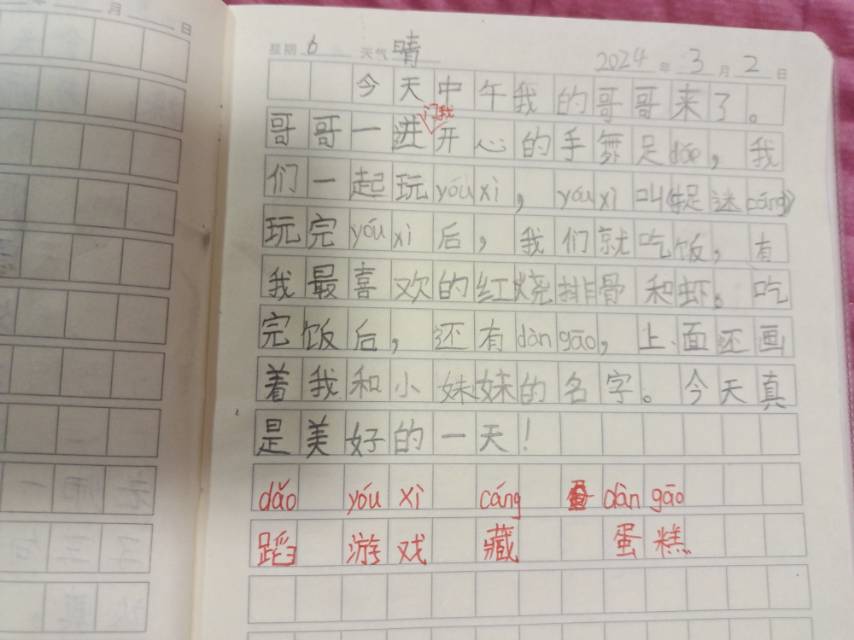 月 日
星期 6 天气 晴 2024 年 3 月 2 日
今天中午我的哥哥来了。
哥哥一进门我开心的手舞足dǎo，我
们一起玩yóuxì，yóuxì叫捉迷cáng，
玩完yóuxì后，我们就吃饭，有
我最喜欢的红烧排骨和虾。吃
完饭后，还有dàngāo，上面还画
着我和小妹妹的名字。今天真
是美好的一天！
dǎo yóu xì cáng dàn gāo
蹈 游戏 藏 蛋糕